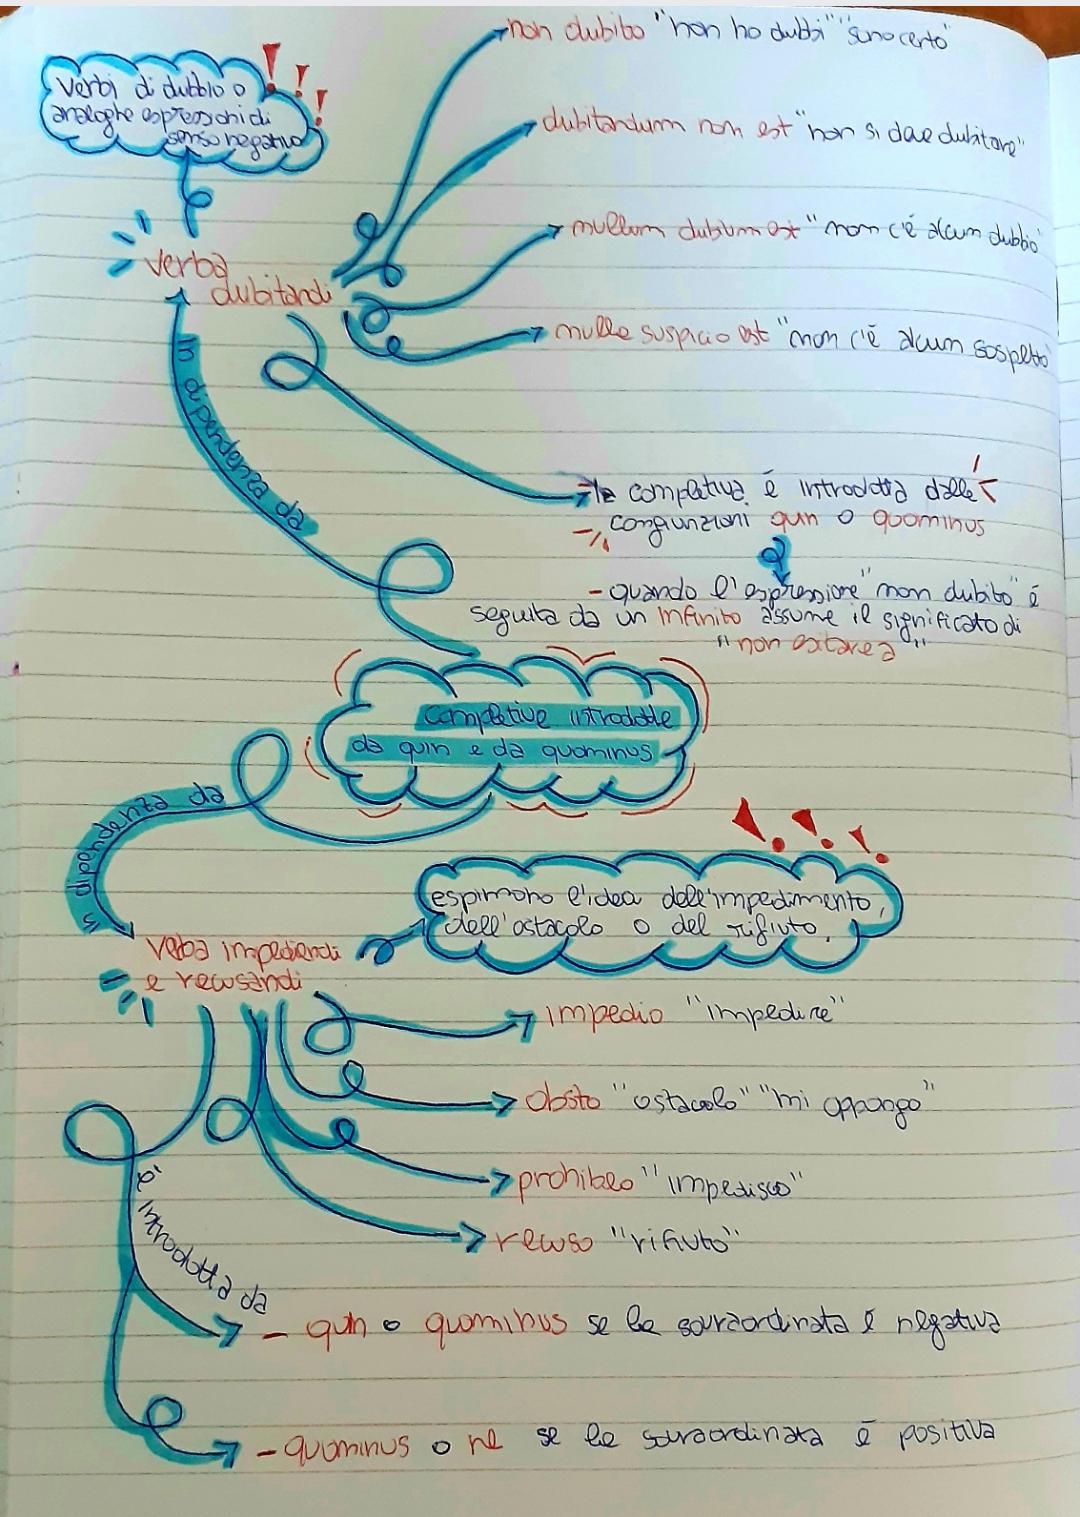 non dubito "non ho dubbi" "sono certo"
verbi di dubbio o
analoghe espressioni di
senso negativo
dubitandum non est "non si deve dubitare"
nullum dubium est "non c'è alcun dubbio
verba
dubitandi
nulla suspicio est "non c'è alcun sospetto
in dipendenza da
- la completiva è introdotta dalle
congiunzioni quin o quominus
- quando l'espressione "non dubito" è
seguita da un infinito assume il significato di
"non
completive introdotte
da quin e da quominus
in dipendenza da
espimono l'idea dell'impedimento,
dell'ostacolo o del rifiuto.
verba impediendi
e recusandi
impedio "impedire"
obsto "ostacolo" "mi oppongo"
prohibeo "impedisco"
recuso "rifiuto"
è introdotta da
- quin o quominus se la sovraordinata è negativa
- quominus o ne se la sovraordinata è positiva